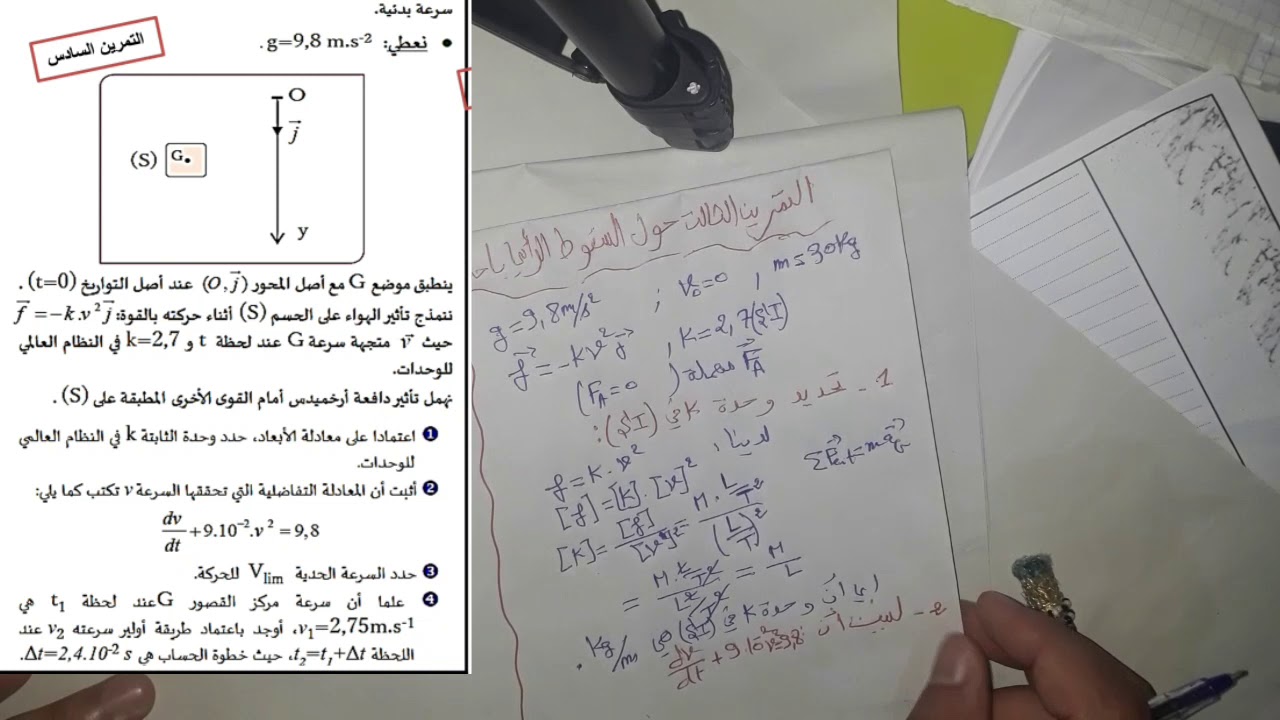 سرعة بدئية.
• نعطي: g=9,8 m.s⁻² .
التمرين السادس
O
j⃗
(S) G
y
ينطبق موضع G مع أصل المحور (O, j⃗) عند أصل التواريخ (t=0) .
ننمذج تأثير الهواء على الجسم (S) أثناء حركته بالقوة: f⃗ = −k.v² j⃗
حيث v⃗ متجهة سرعة G عند لحظة t و k=2,7 في النظام العالمي
للوحدات.
نهمل تأثير دافعة أرخميدس أمام القوى الأخرى المطبقة على (S) .
❶ اعتمادا على معادلة الأبعاد، حدد وحدة الثابتة k في النظام العالمي
للوحدات.
❷ أثبت أن المعادلة التفاضلية التي تحققها السرعة v تكتب كما يلي:
dv/dt + 9.10⁻².v² = 9,8
❸ حدد السرعة الحدية V_lim للحركة.
❹ علما أن سرعة مركز القصور G عند لحظة t₁ هي
v₁=2,75m.s⁻¹، أوجد باعتماد طريقة أولير سرعته v₂ عند
اللحظة t₂=t₁+Δt، حيث خطوة الحساب هي Δt=2,4.10⁻² s.
التمرين الثالث حول السقوط الرأسي باحـ
g=9,8m/s² ; v₀=0 , m=30Kg
f⃗ = −kv² j⃗ , k=2,7(SI)
(F_A=0 ) مهملة F⃗_A
1- تحديد وحدة k في (SI):
لدينا,
f=k.v² ΣF⃗ext=ma⃗_G
[f]=[k].[v]²
[k]=[f]/[v]²=M.L/T²/(L/T)²
=M.L/T²/L²/T²=M/L
إيما أن وحدة k في (SI) هي Kg/m .
2- لنبين أن dv/dt+9.10⁻²v²=9,8: